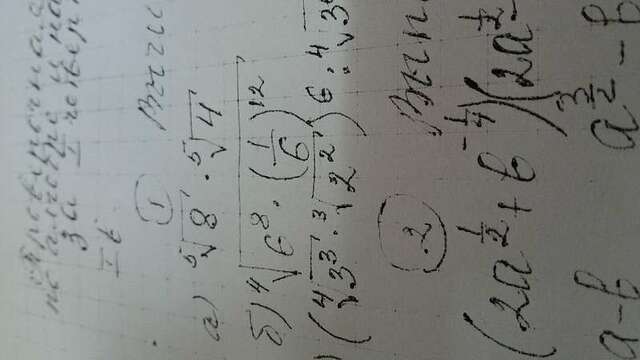 Проверочная
по алгебре и на
за I четвер
I в.
① Вычи
а) ⁵√8 · ⁵√4
б) ⁴√(6⁸ · (1/6)¹²)
) (⁴√3³ · ³√2²)⁶ : ⁴√3
② Вып
(2a^(1/2) + b^(-1/4))(2a^(1/2) -
a - b a^(3/2) - b